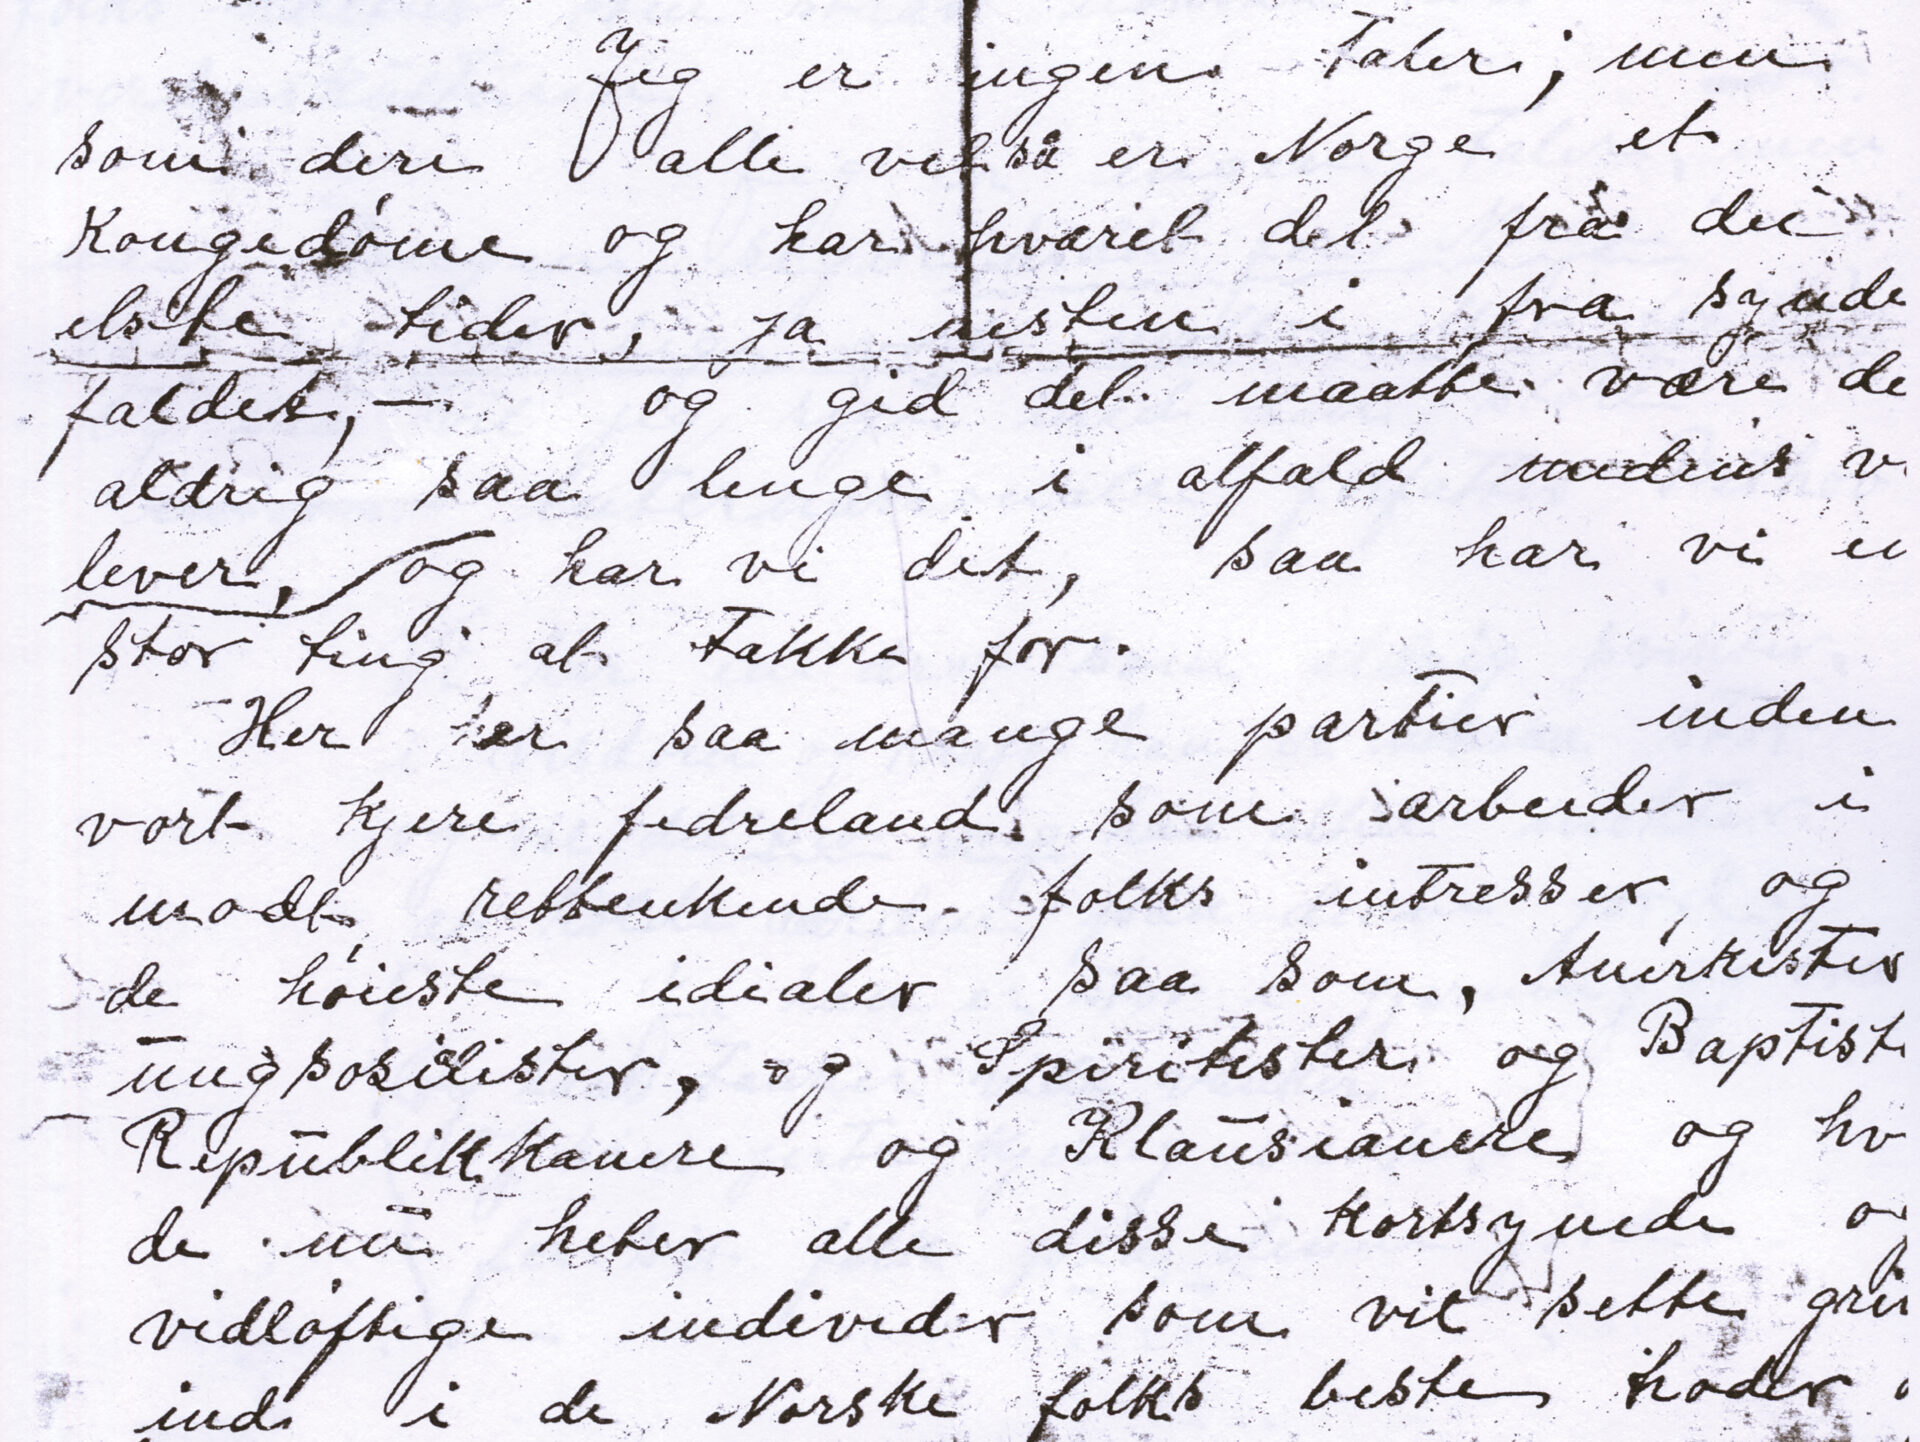 Jeg er ingen Taler, men
som dere alle vet så er Norge et
Kongedóme og har hværet det frå dei
elste tider, ja nesten i fra synde
faldet, – og gid det maatte være de
aldrig saa lenge i alfald medens v
lever, og har vi det, saa har vi en
stor ting at Takke for.
Her er saa mange partier inden
vort kjere fedreland som arbeider i
modt rettenkende folks intresser og
de hóieste idialer saa som, Anerkister
ungsosilister, og Spiritister og Baptist
Republikkanere og Klausianere og hv
de nu heter alle disse kortsynede og
vidlóftige individer som vil sette grin
ind i de Norske folks beste hoder